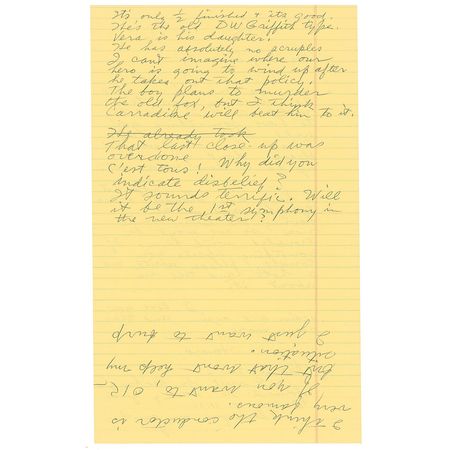 It's only ½ finished & its good.
He's the old DW Griffith type.
Vera is his daughter.
He has absolutely no scruples
I can't imagine where our
hero is going to wind up after
he takes out that policy.
The boy plans to murder
the old fox, but I think
Carradine will beat him to it.
He already took
That last close-up was
overdone
C'est tous! Why did you
indicate disbelief?
It sounds terrific. Will
it be the 1st symphony in
the new theater?
I think the conductor is
very famous.
If you want to, O.K.
but that wont help my
situation.
I just want to burp